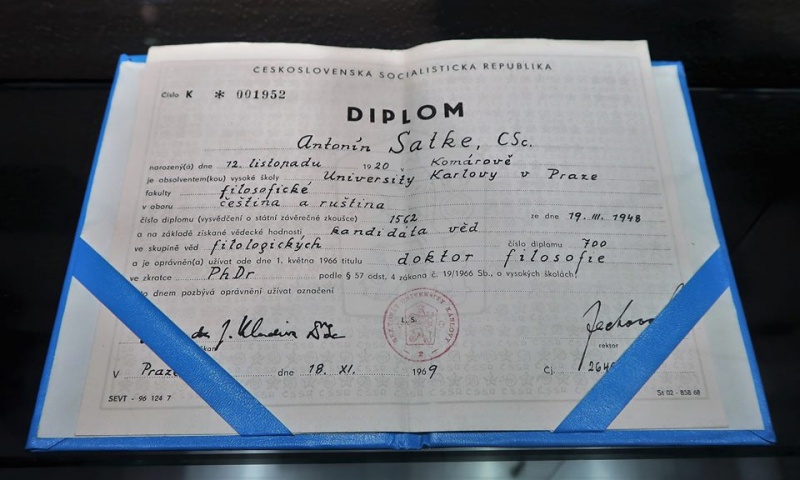 ČESKOSLOVENSKÁ SOCIALISTICKÁ REPUBLIKA
Číslo K * 001952
DIPLOM
Antonín Satke, CSc.
narozený(á) dne 12. listopadu 1920 v Komárově
je absolventem(kou) vysoké školy University Karlovy v Praze
fakulty filosofické
v oboru čeština a ruština
číslo diplomu (vysvědčení o státní závěrečné zkoušce) 1562 ze dne 19. III. 1948
a na základě získané vědecké hodnosti kandidáta věd
ve skupině věd filologických číslo diplomu 700
a je oprávněn(a) užívat ode dne 1. května 1966 titulu doktor filosofie
ve zkratce PhDr podle § 57 odst. 4 zákona č. 19/1966 Sb., o vysokých školách
dnem pozbývá oprávnění užívat označení
L. S.
UNIVERSITY KARLOVY
rektor
V Praze dne 18. XI. 1969 Čj.
SEVT - 96 124 7 St 02 - 858 68